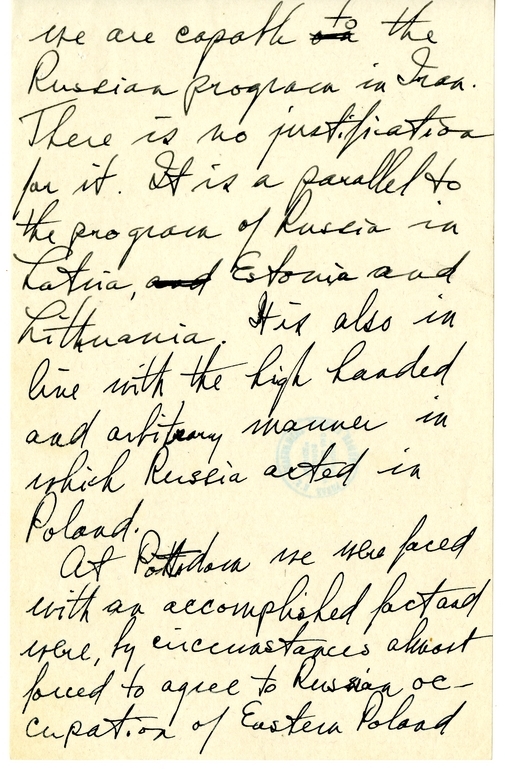 we are capable on to the
Russian program in Iran.
There is no justification
for it. It is a parallel to
the program of Russia in
Latvia, and Estonia and
Lithuania. It is also in
line with the high handed
and arbitrary manner in
which Russia acted in
Poland.
At Pottsdam we were faced
with an accomplished fact and
were, by circumstances almost
forced to agree to Russian oc-
cupation of Eastern Poland